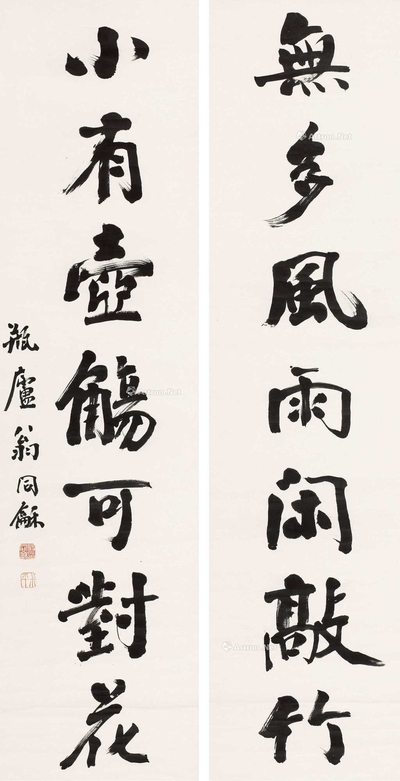 無多風雨閑敲竹
小有壺觴可對花
瓶廬翁同龢